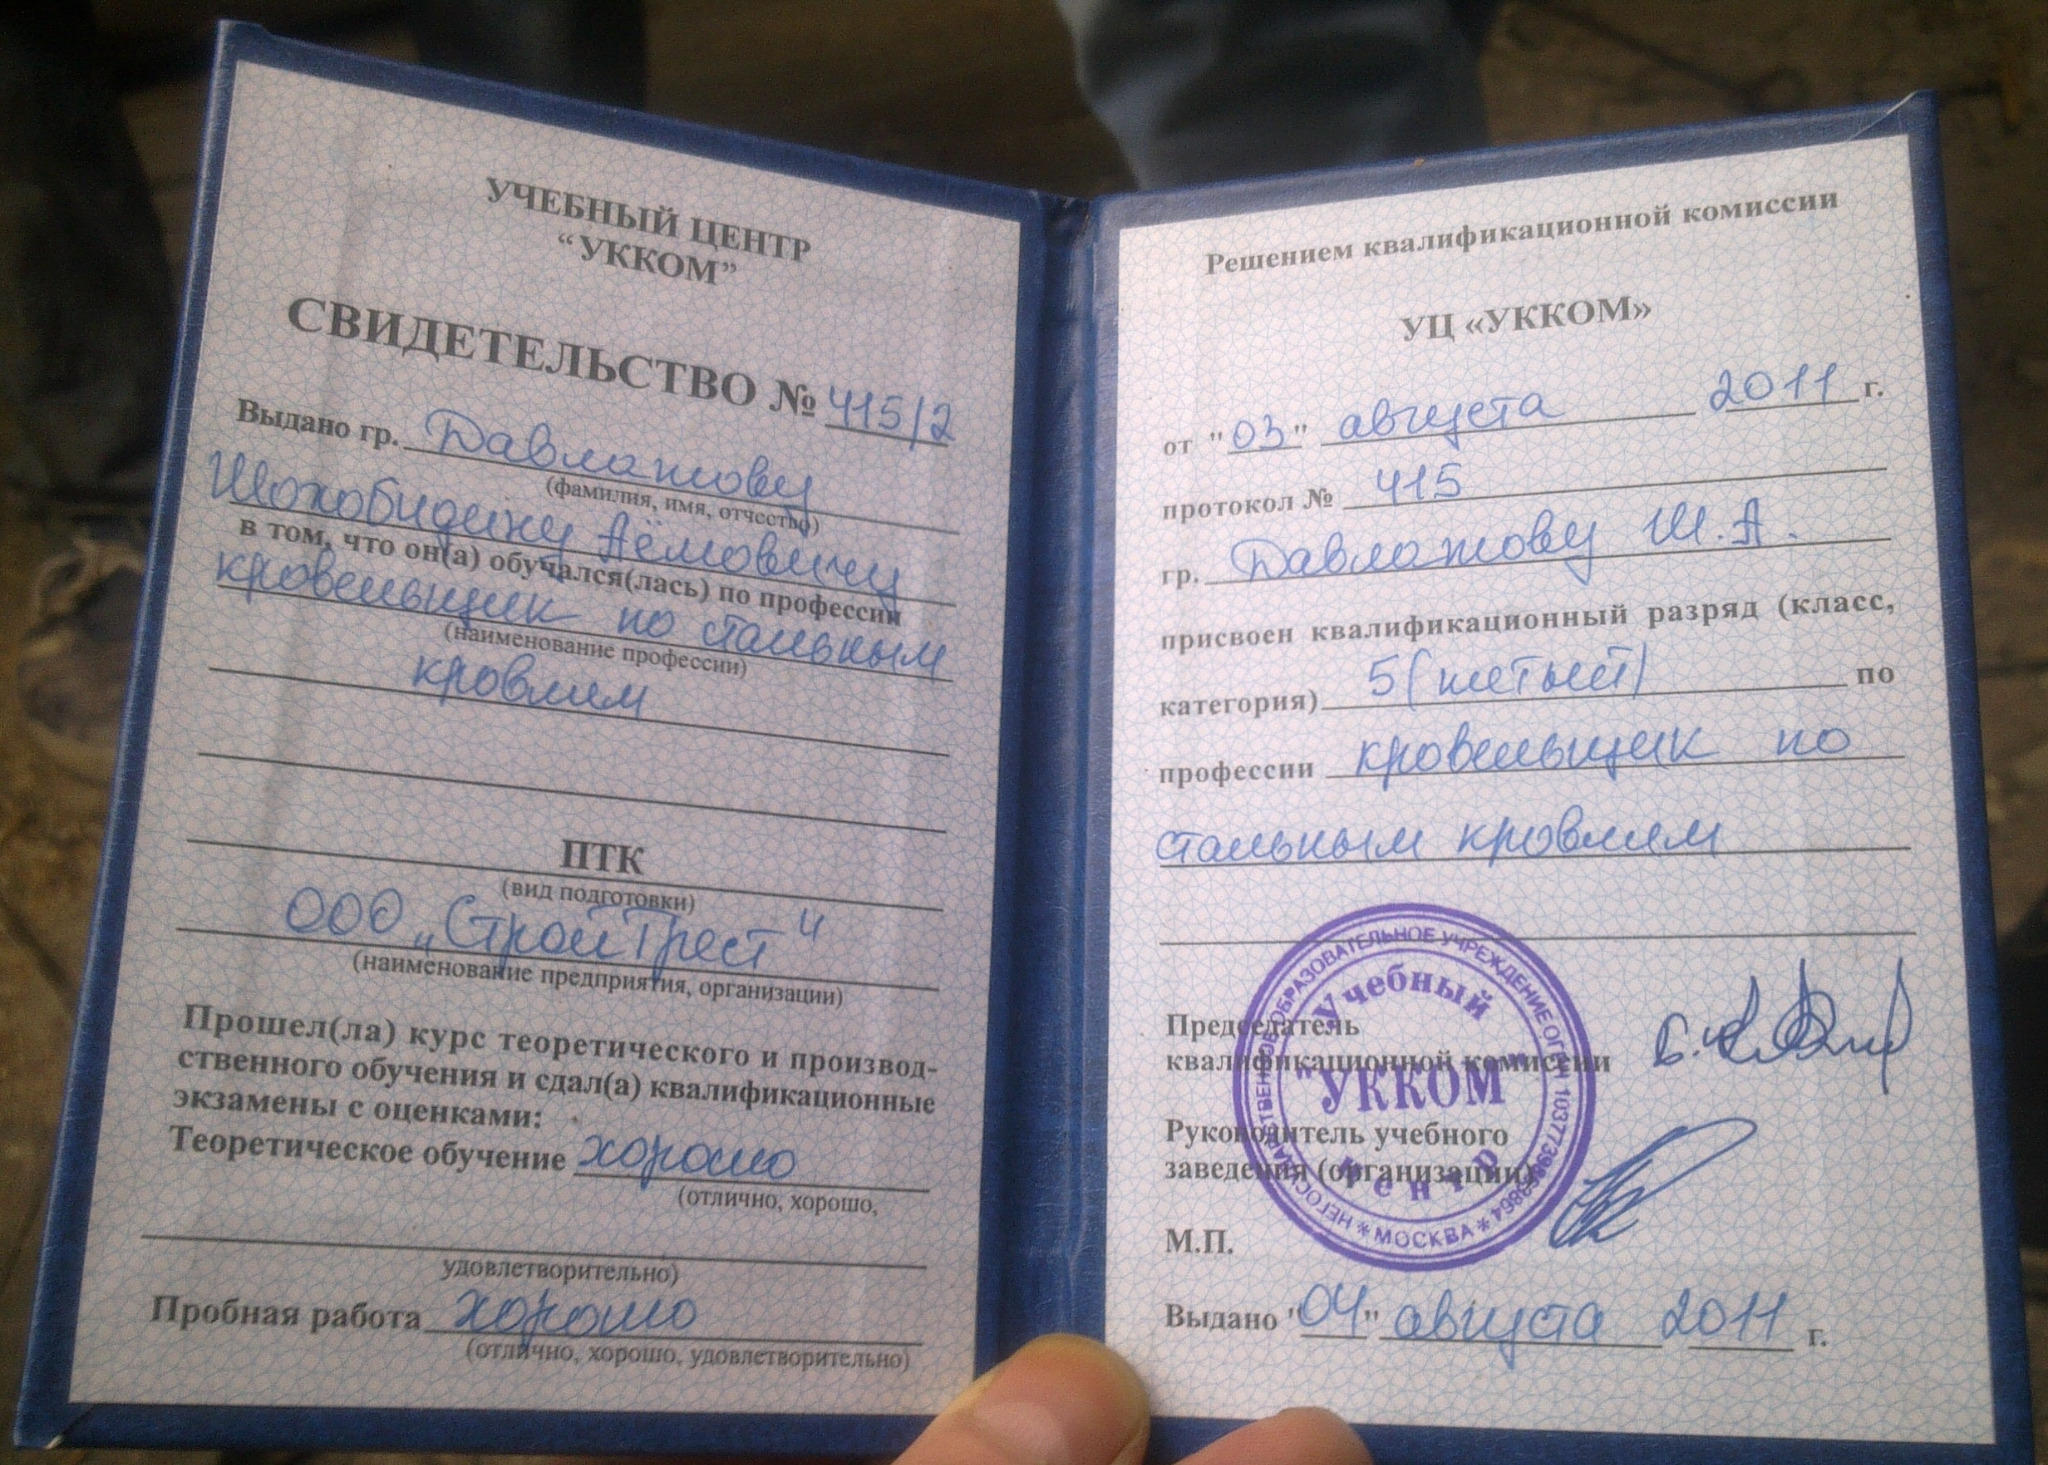 УЧЕБНЫЙ ЦЕНТР
“УККОМ”
СВИДЕТЕЛЬСТВО № 415/2
Выдано гр. Давлатову
(фамилия, имя, отчество)
Шохобидину Аёмовичу
в том, что он(а) обучался(лась) по профессии
кровельщик по стальным
(наименование профессии)
кровлям
ПТК
(вид подготовки)
ООО „СтройТрест“
(наименование предприятия, организации)
Прошел(ла) курс теоретического и производ-
ственного обучения и сдал(а) квалификационные
экзамены с оценками:
Теоретическое обучение хорошо
(отлично, хорошо,
удовлетворительно)
Пробная работа хорошо
(отлично, хорошо, удовлетворительно)
Решением квалификационной комиссии
УЦ «УККОМ»
от "03" августа 2011 г.
протокол № 415
гр. Давлатову Ш.А.
присвоен квалификационный разряд (класс,
категория) 5 (пятый) по
профессии кровельщик по
стальным кровлям
Председатель
квалификационной комиссии
Руководитель учебного
заведения (организации)
М.П.
НЕГОСУДАРСТВЕННОЕ ОБРАЗОВАТЕЛЬНОЕ УЧРЕЖДЕНИЕ ОГРН
* МОСКВА *
Учебный
"УККОМ"
центр
Выдано "04" августа 2011 г.